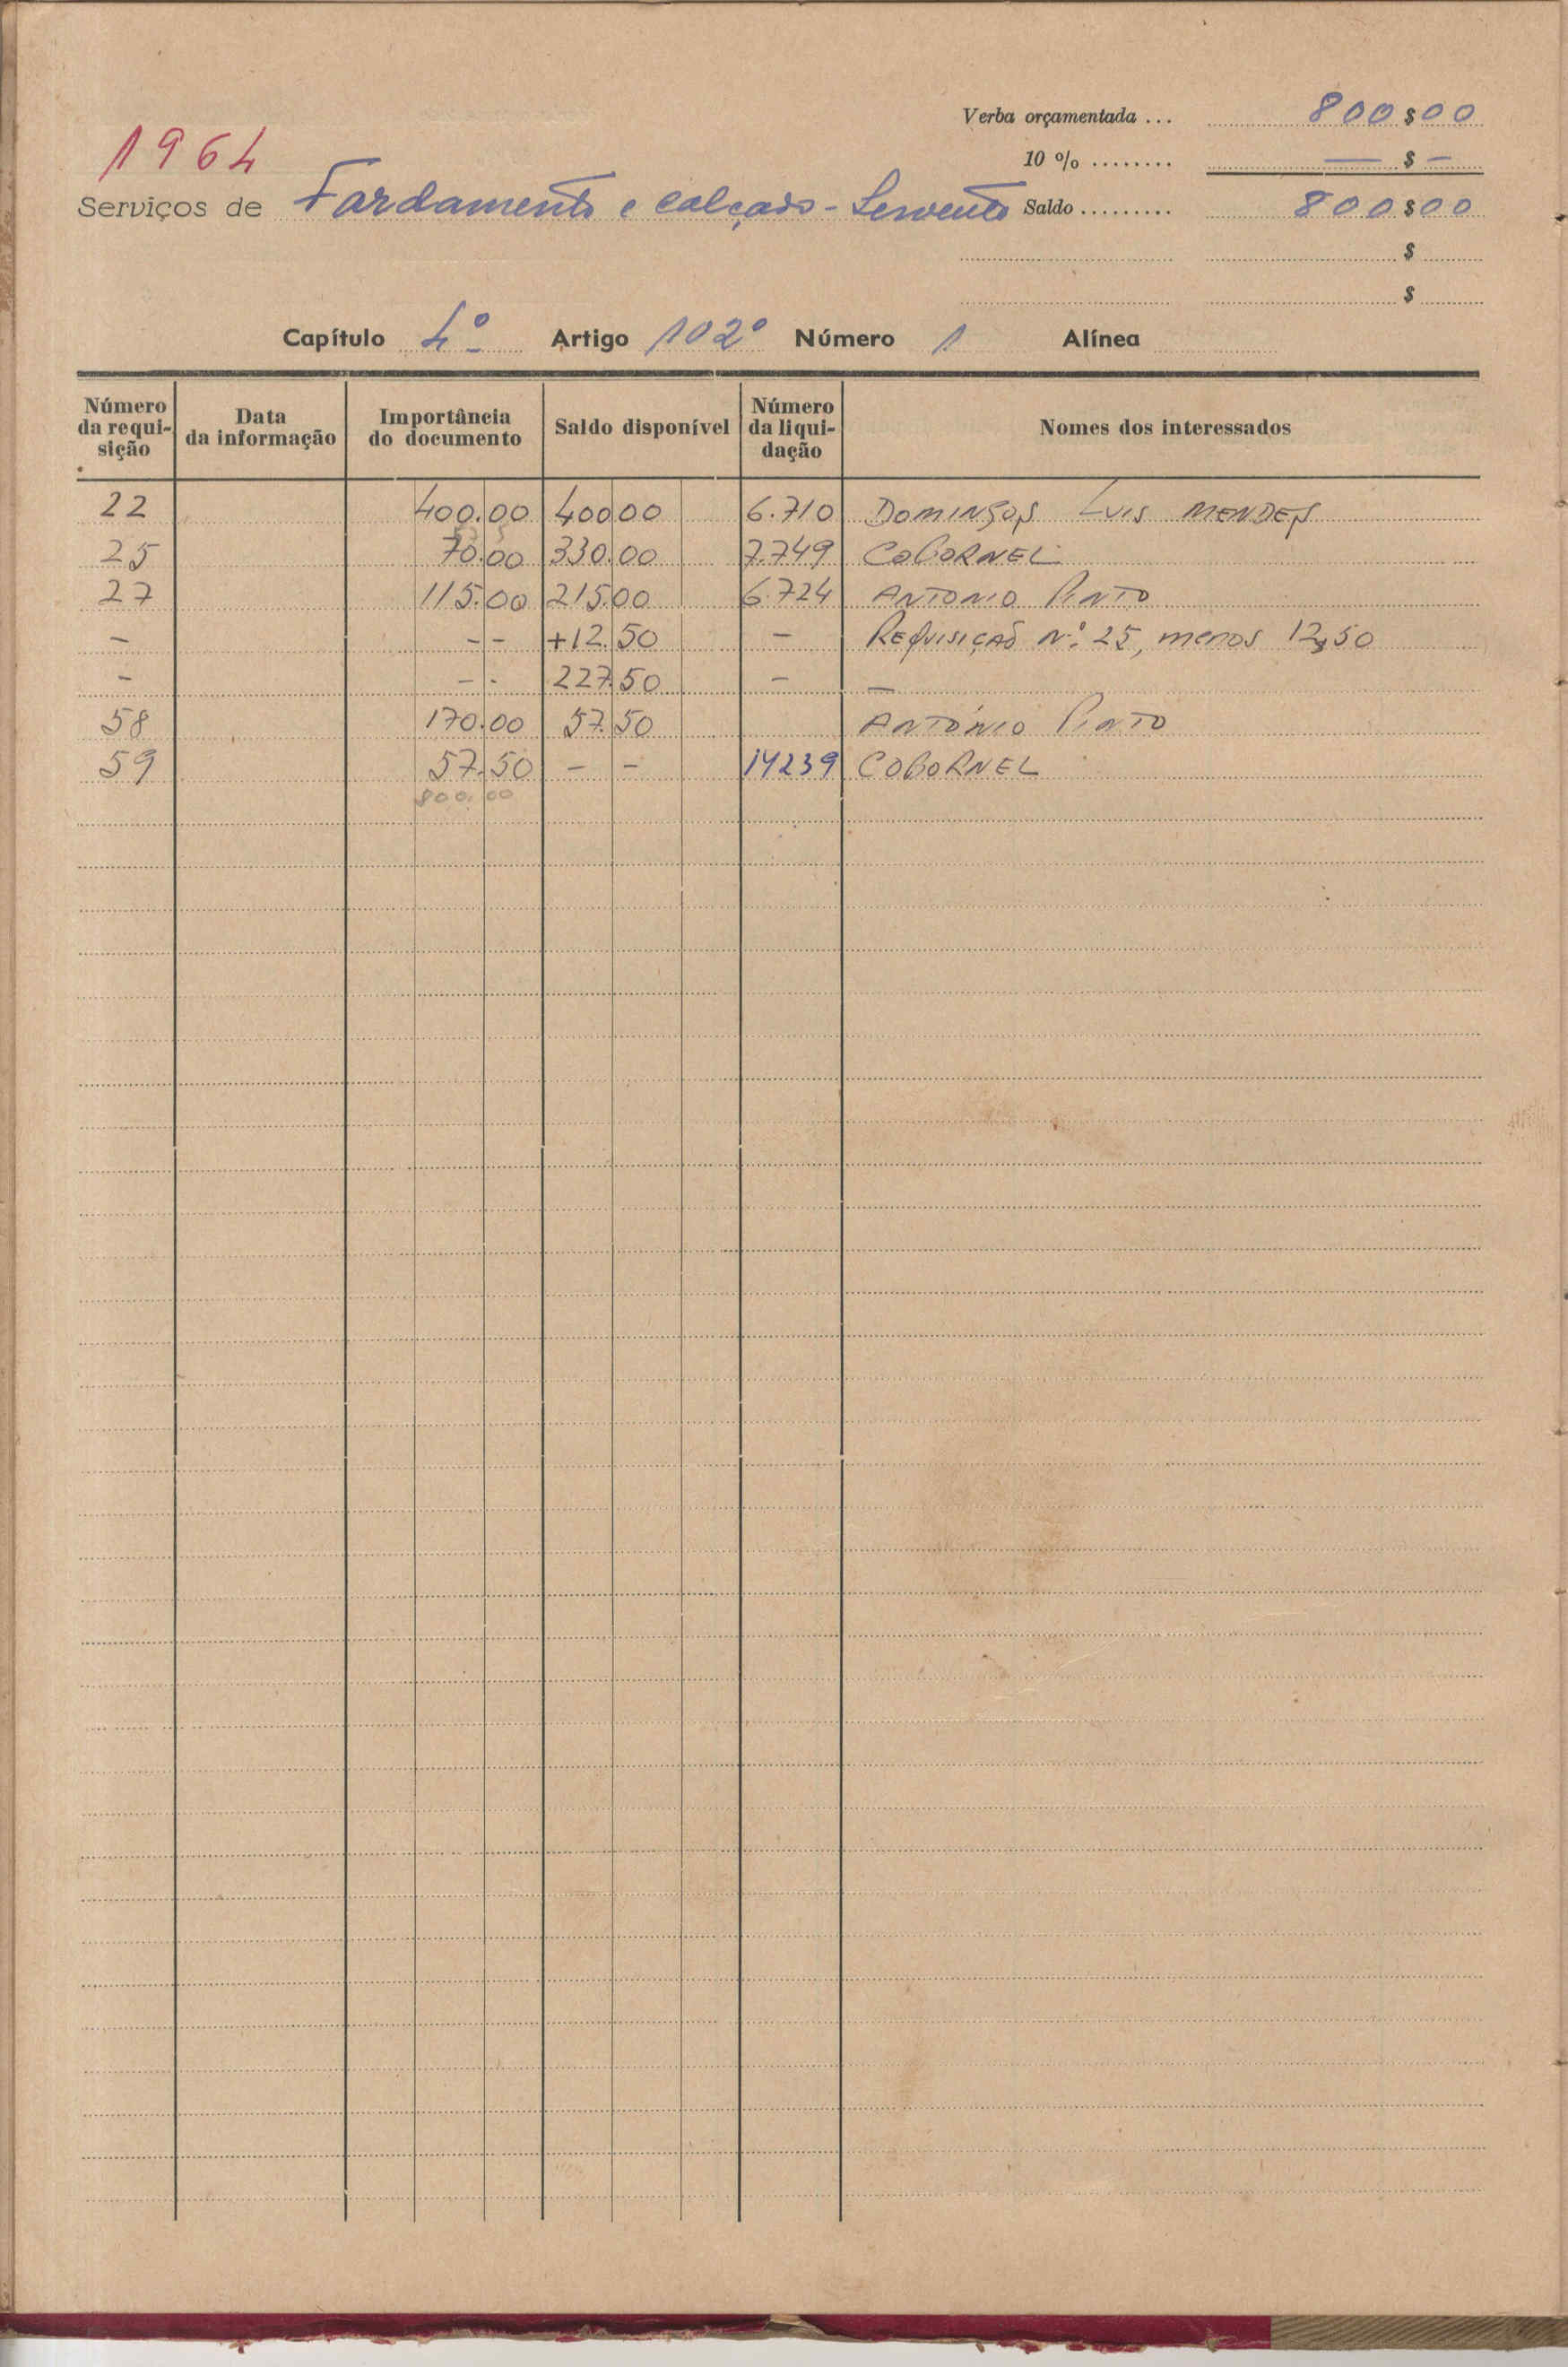 1964
Verba orçamentada ... 800$00
10 % ........ — $ —
Serviços de Fardamento e calçado - Servente Saldo ......... 800$00
$
$
Capítulo 4º Artigo 102º Número 1 Alínea
Número da requi-sição Data da informação Importância do documento Saldo disponível Número da liqui-dação Nomes dos interessados
22 400.00 400 00 6.710 DOMINGOS LUIS MENDES
25 70.00 330.00 7.749 COBORNEL
27 115.00 215.00 6.724 ANTONIO PINTO
— - - +12.50 — REQUISIÇÃO N.º 25, menos 12$50
— - - 227.50 — —
58 170.00 57.50 ANTÓNIO PINTO
59 57.50 — — 14239 COBORNEL
800.00